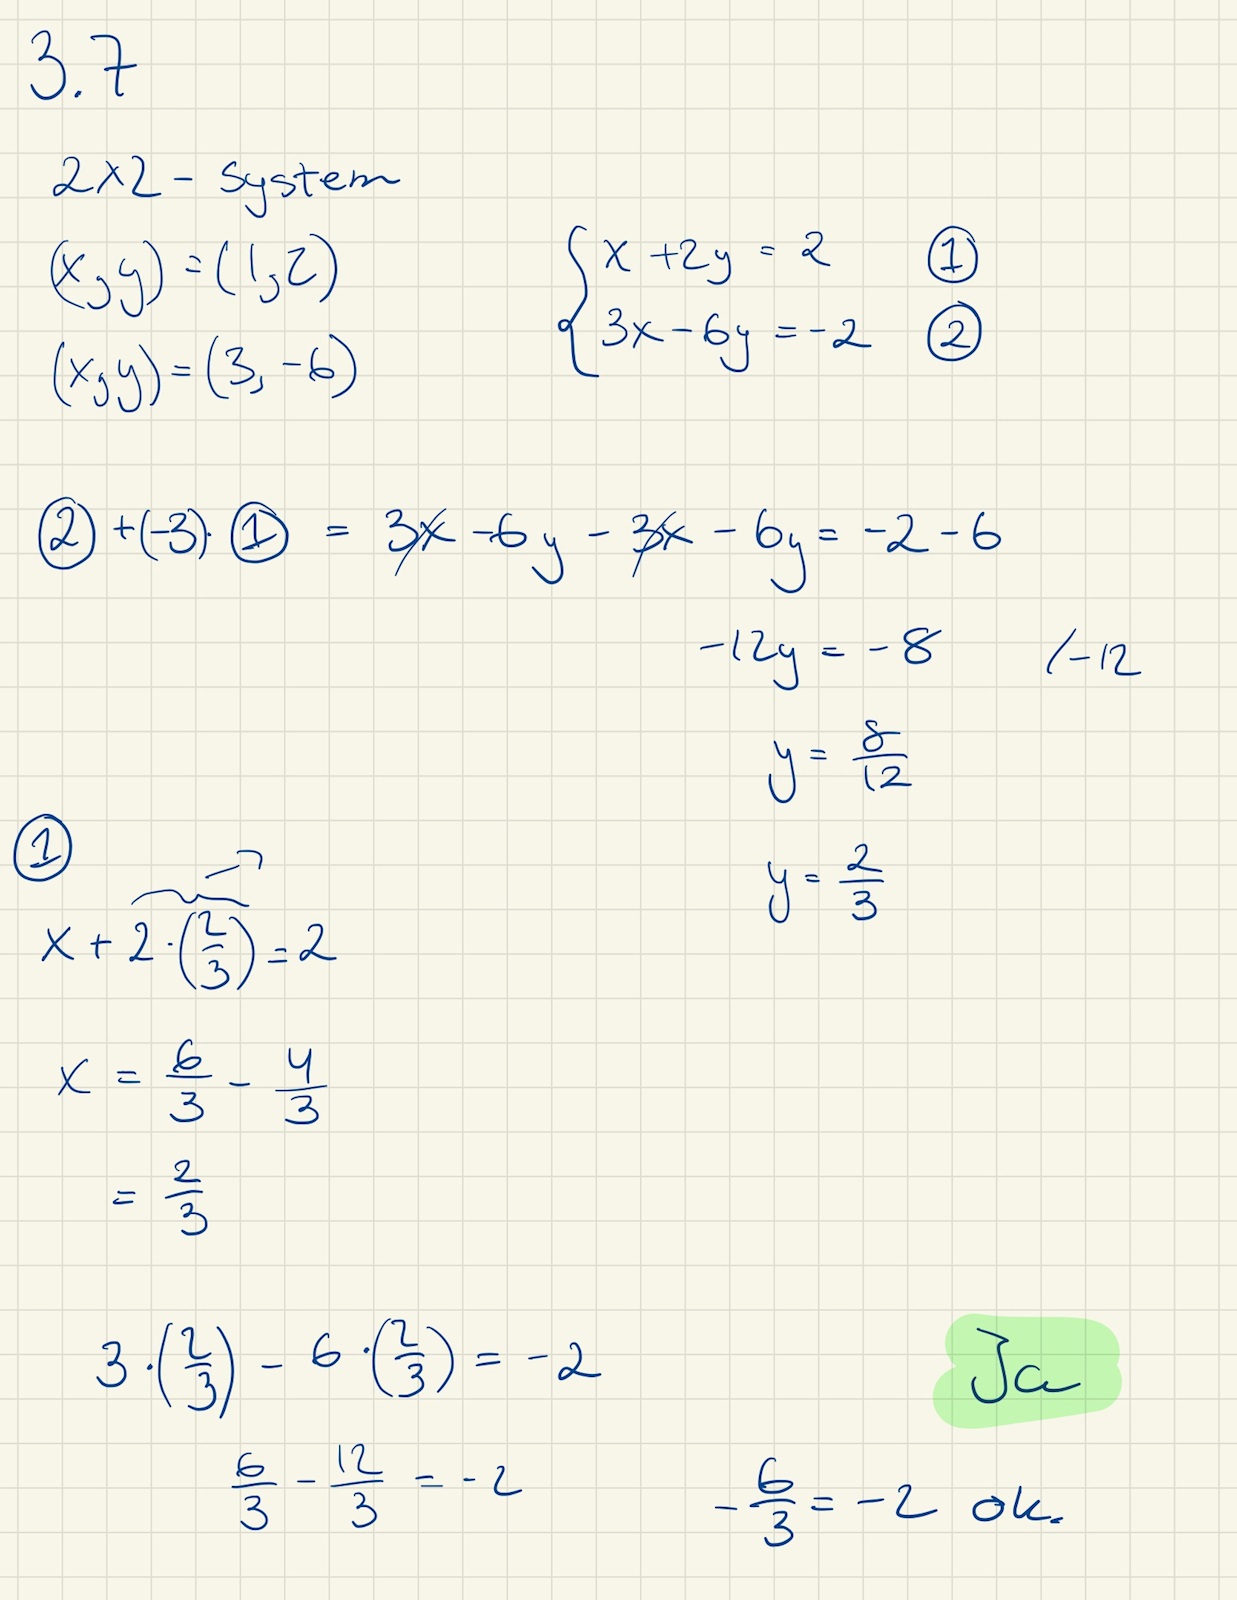 3.7
2x2 - system
(x,y) = (1,2)
(x,y) = (3, -6)
x + 2y = 2 ①
3x - 6y = -2 ②
② + (-3) · ① = 3x - 6y - 3x - 6y = -2 - 6
-12y = -8 /-12
y = 8/12
y = 2/3
①
x + 2 · (2/3) = 2
x = 6/3 - 4/3
= 2/3
3 · (2/3) - 6 · (2/3) = -2
Ja
6/3 - 12/3 = -2
-6/3 = -2 ok.